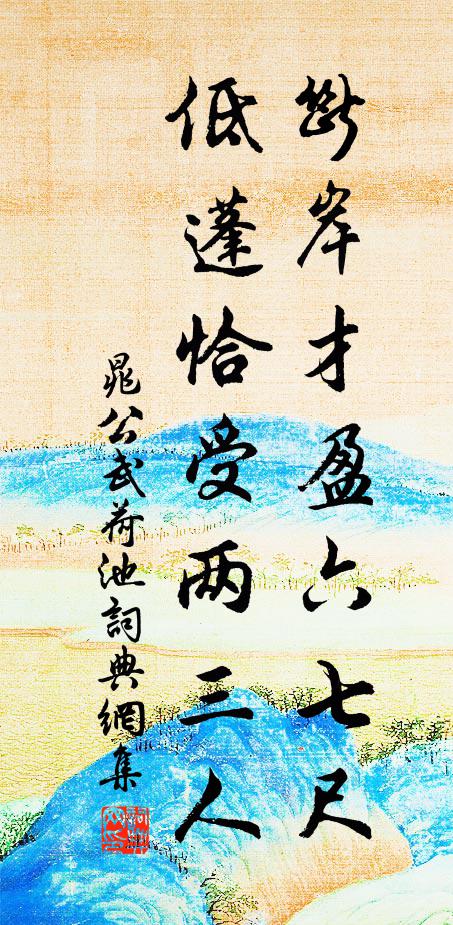 斷岸才盈六七尺
低蓬恰受两三人
晁公武荷池詞典網集